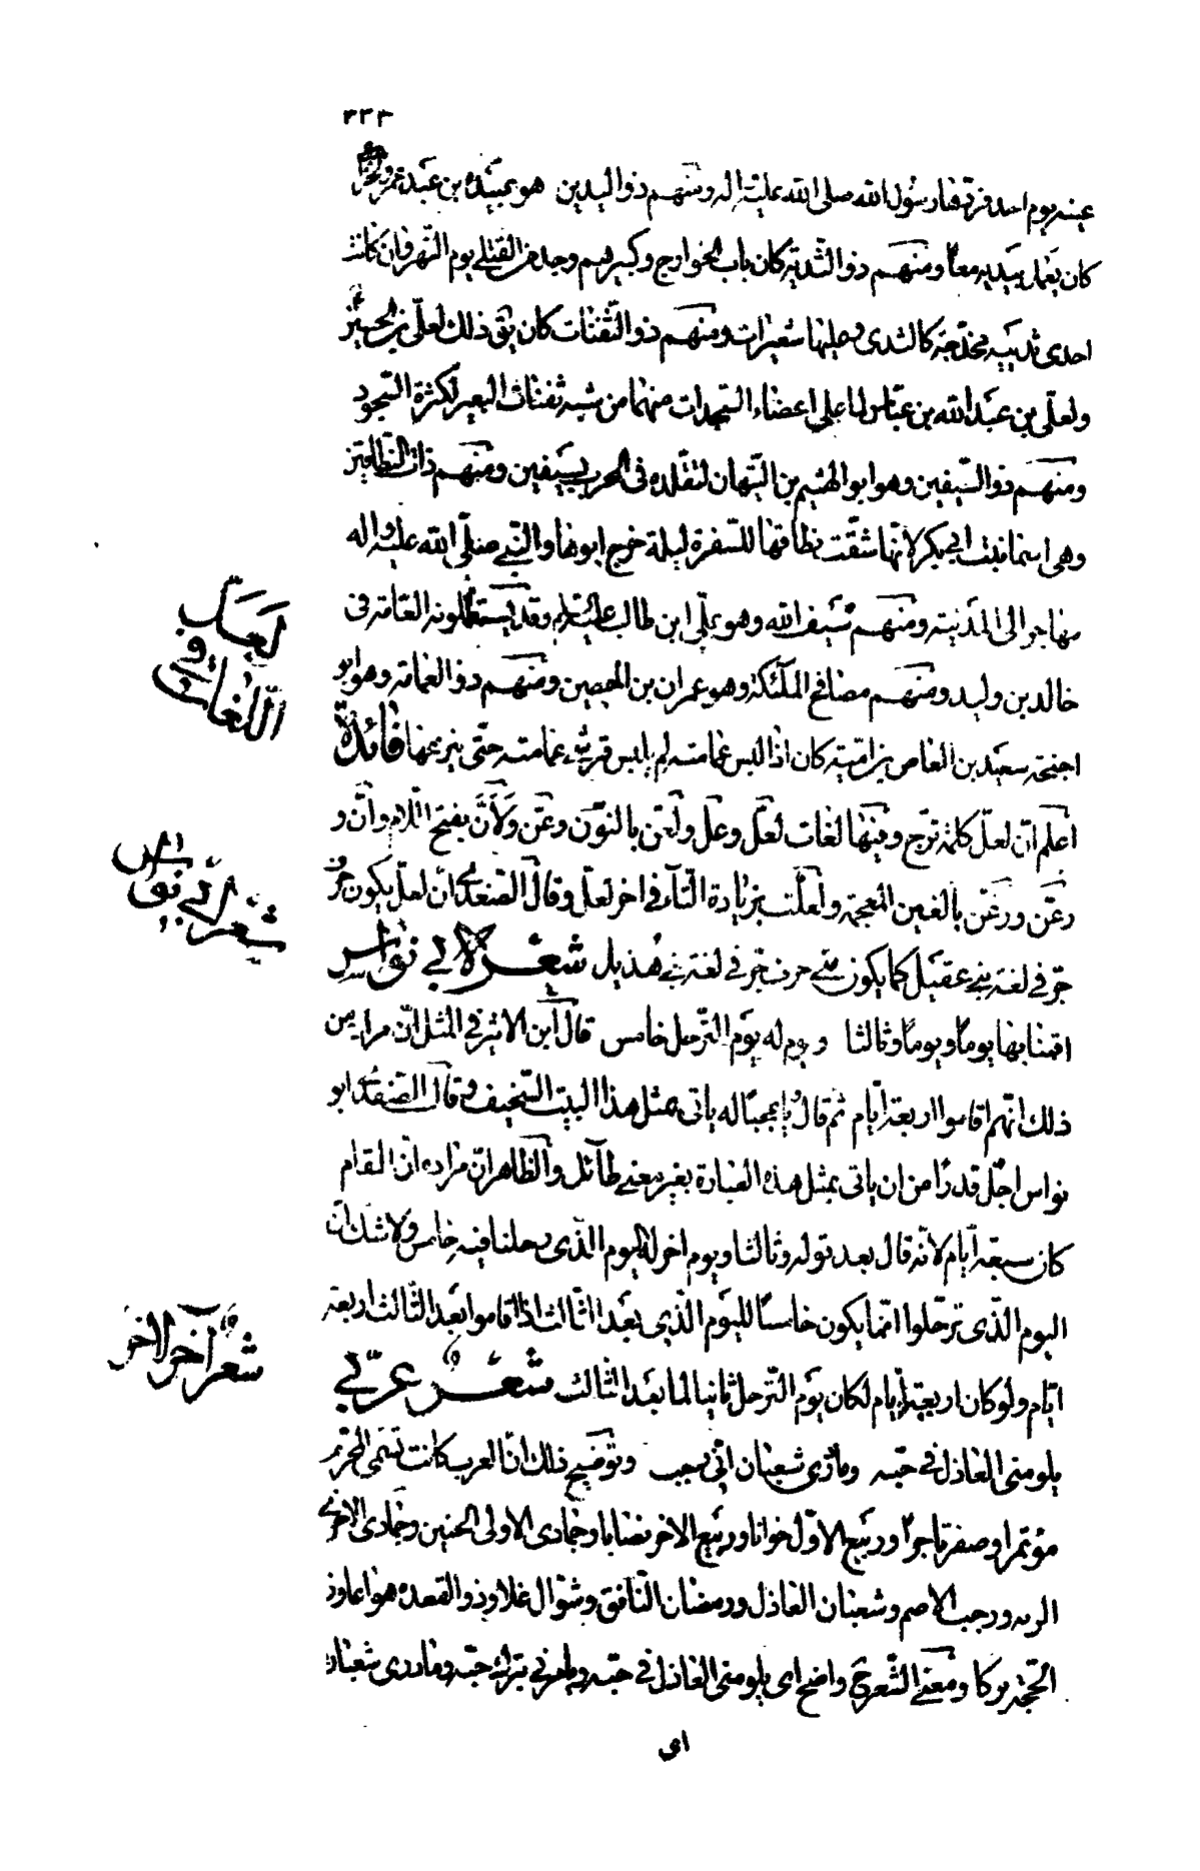 ٣٣٣
عينه يوم احد فردها رسول الله صلى الله عليه واله ومنهم ذو اليدين هو عبيدة بن عبد عمرو الخزاعى
كان يعمل بيديه معاً ومنهم ذو الثدية كان باب الخوارج وكبيرهم وجد فى القتلى يوم النهروان كانت
احدى ثدييه مخدّجة كالثدى وعليها شعيرات ومنهم ذو الثفنات كان يق ذلك لعلى بن الحسين
ولعلى بن عبد الله بن عباس لما على اعضاء السجدات منهما من شبه ثفنات البعير لكثرة السجود
ومنهم ذو السيفين وهو ابو الهشيم بن التيهان لتقلده فى الحرب بسيفين ومنهم ذات النطاقين
وهى اسماء بنت ابى بكر لانها شقت نطاقها للسفرة ليلة خرج ابوها والنبى صلى الله عليه واله
مهاجرا الى المدينة ومنهم سيف الله وهو على ابن طالب عليه السلام وقد يستعملونه العامة فى
خالد بن وليد ومنهم مصافح الملئكة وهو عمران بن الحصين ومنهم ذو العمامة وهو ابو
اجنحة سعيد بن العاص بن امية كان اذا لبس عمامته لم يلبس قرشى عمامته حتى ينزعها فائدة
اعلم ان لعلّ كلمة ترجّ وفيها لغات لعلّ وعلّ ولعنّ بالنون وعنّ ولأنّ بفتح اللام وأنّ و
رعنّ ورغنّ بالغين المعجمة ولعلّت بزيادة التاء فى اخر لعل وقال الصفدى انّ لعلّ يكون حرف
جرّ فى لغة بنى عقيل كما يكون متى حرف جرّ فى لغة بنى هذيل شعر لابى نواس
اقمنا بها يوماً ويوماً وثالثا ويوم له يوم الترحل خامس قال ابن الاثير فى المثل انّ مراده من
ذلك انهم اقاموا اربعة ايام ثم قال يا عجبا له ياتى بمثل هذا البيت السخيف وقال الصفدى ابو
نواس اجلّ قدراً من ان ياتى بمثل هذه العبارة بغير معنى طآئل والظاهر ان مراده انّ المقام
كان سبعة ايام لانه قال بعد قوله وثالثا ويوم اخر له اليوم الذى رحلنا فيه خامس ولا شك انّ
اليوم الذى ترحلوا انما يكون خامسا لليوم الذى بعد الثالث اذا اقاموا بعد الثالث اربعة
ايام ولو كان اربعة ايام لكان يوم الترحل ثانيا لما بعد الثالث شعر عربى
يلومنى العاذل فى حبّه وما درى شعبان انى رجب وتوضيح ذلك انّ العرب كانت تسمى المحرّم
مؤتمرا وصفر ناجرا وربيع الاوّل خوانا وربيع الاخر بصانا وجمادى الاولى الحنين وجمادى الاخرى
الربه ورجب الاصم وشعبان العاذل ورمضان الناتق وشوال غلا وذو القعده هواعا وذو
الحجة بركا ومعنى الشعر واضح اى يلومنى العاذل فى حبه وما درى شعبان
اى
لعلّ
و
اللغات فى
شعر ابى نواس
شعر آخر لاخر